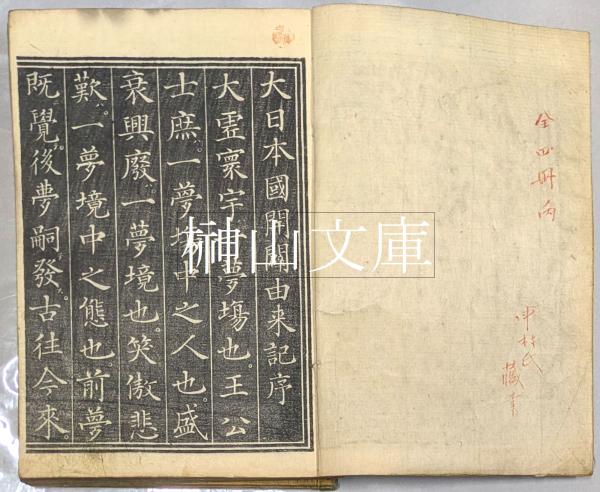 全四冊内
中村氏
藏書
大日本國開闢由来記序
大虗寰宇一夢塲也。王公
士庶。一夢塲中之人也。盛
衰興廢。一夢境也。笑傲悲
歎。一夢境中之態也前夢
既覺。後夢嗣發。古往今來。
榊山文庫